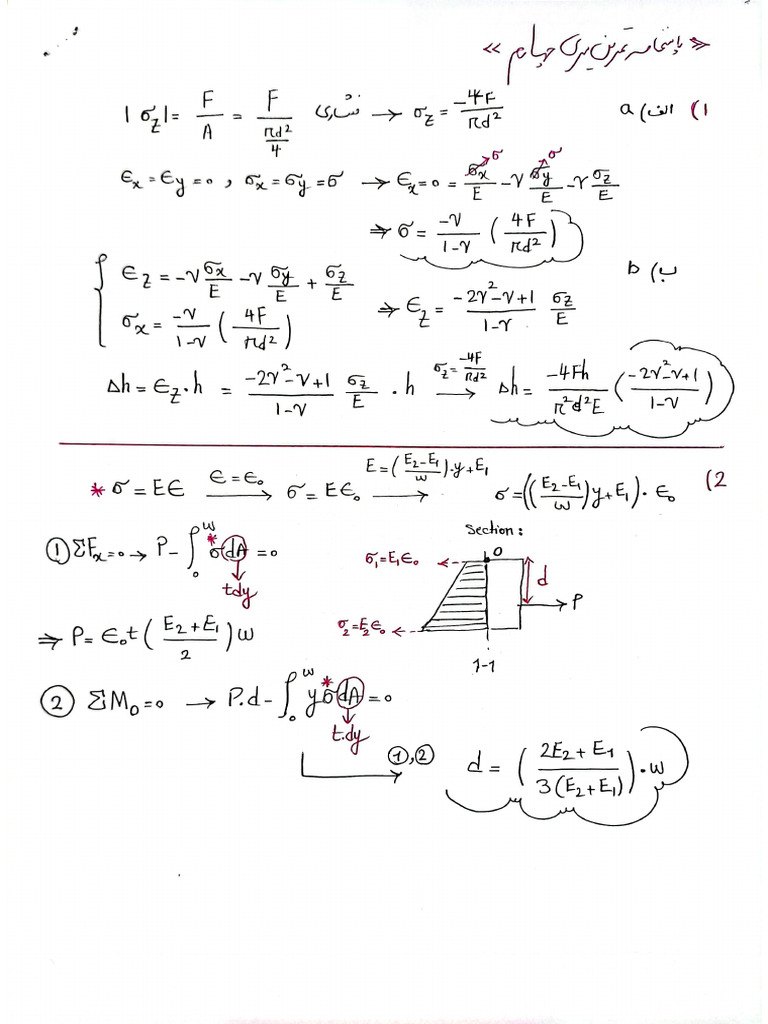 «پاسخنامه تمرین سری چهارم»
1) الف) a |σ_z| = F/A = F/(πd²/4) فشاری → σ_z = -4F/πd²
ϵ_x = ϵ_y = 0 , σ_x = σ_y = σ → ϵ_x = 0 = σ_x/E - ν σ_y/E - ν σ_z/E
σ σ
⇒ σ = -ν/(1-ν) (4F/πd²)
ب) b
{ ϵ_z = -ν σ_x/E - ν σ_y/E + σ_z/E
σ_x = -ν/(1-ν) (4F/πd²)
⇒ ϵ_z = (-2ν²-ν+1)/(1-ν) σ_z/E
Δh = ϵ_z · h = (-2ν²-ν+1)/(1-ν) σ_z/E · h → σ_z = -4F/πd² Δh = -4Fh/π²d²E ((-2ν²-ν+1)/(1-ν))
2) * σ = Eϵ → ϵ = ϵ₀ σ = Eϵ₀ → E = ((E₂-E₁)/w)·y + E₁ σ = (((E₂-E₁)/w)y + E₁)·ϵ₀
① ΣF_x = 0 → P - ∫₀^w σ* dA = 0
tdy
⇒ P = ϵ₀t ((E₂+E₁)/2) w
Section:
O
σ₁ = E₁ϵ₀
d
P
σ₂ = E₂ϵ₀
1-1
② ΣM₀ = 0 → P.d - ∫₀^w yσ* dA = 0
t.dy
①,② d = ((2E₂ + E₁)/(3(E₂+E₁)))·w